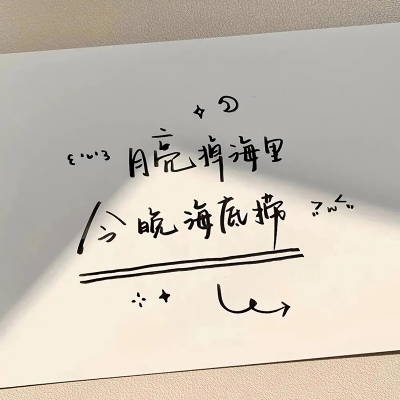 月亮掉海里
今晚海底捞